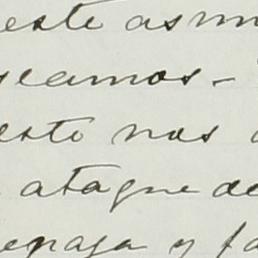 este asun
seamos-
esto nos
ataque de
enaza y fa